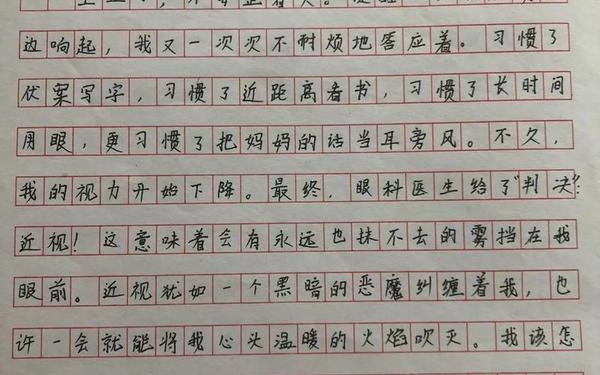 边响起，我又一次次不耐烦地答应着。习惯了
伏案写字，习惯了近距离看书，习惯了长时间
用眼，更习惯了把妈妈的话当耳旁风。不久，
我的视力开始下降。最终，眼科医生给了"判决"：
近视！这意味着会有永远也抹不去的雾挡在我
眼前。近视犹如一个黑暗的恶魔纠缠着我，也
许一会就能将我心头温暖的火焰吹灭。我该怎